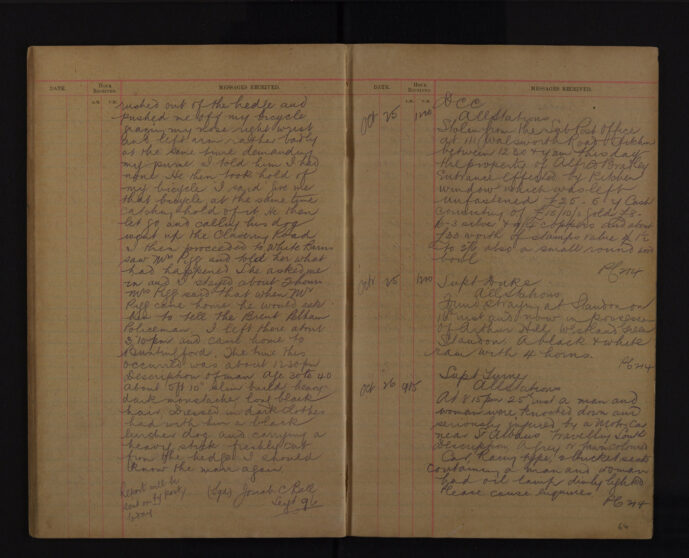 DATE.
HOUR RECEIVED.
MESSAGES RECEIVED.
A.M. P.M.
rushed out of the hedge and
pushed me off my bicycle
grazing my nose right wrist
and left arm rather badly
at the same time demanding
my purse I told him I had
none. He then took hold of
my bicycle I said give me
that bicycle, at the same time
catching hold of it He then
let go and calling his dog
went up the Clavering Road
I then proceeded to White Barns
saw Mrs and told her what
had happened. She asked me
in and I stayed about hour
Mrs said that when Mr
came home he would ask
him to tell the Brent Pelham
Policeman. I left there about
3.10pm and came home to
Buntingford. The time this
occurred was about 12.30pm
Description of man. Age 30 to 40
about 5ft 10" slim build, heavy
dark moustache, long black
hair, dressed in dark clothes
had with him a black
lurcher dog and carrying a
heavy stick freshly cut
from the hedge. I should
know the man again.
Report will be
sent on by
today
(Sgd) Josiah C
Sergt 96
DATE.
HOUR RECEIVED.
MESSAGES RECEIVED.
A.M. P.M.
Oct 25
DCC
All Stations
Stolen from the Sub Post Office
at 111 Walsworth Road Hitchin
between 12.30 & 7am this day
the property of Alfred
Entrance effected by Kitchen
window which was left
unfastened £25. Cash
consisting of gold £8-
silver & coppers and about
worth of stamps value
to also a small round
PC 214
Oct 25
Supt
All Stations
Found straying at Standon on
inst and now in possession
of Arthur Hill
Standon A black & white
with 4 horns.
PC 214
Oct 26 915
Supt
All Stations
At 8.15pm 25th inst a man and
woman were knocked down and
seriously injured by a Motor Car
near St Albans travelling South
Description A grey or fawn coloured
Car Racing type & bucket seats
containing a man and woman
had oil lamp dimly lighted
Please cause enquiries
PC 214
64